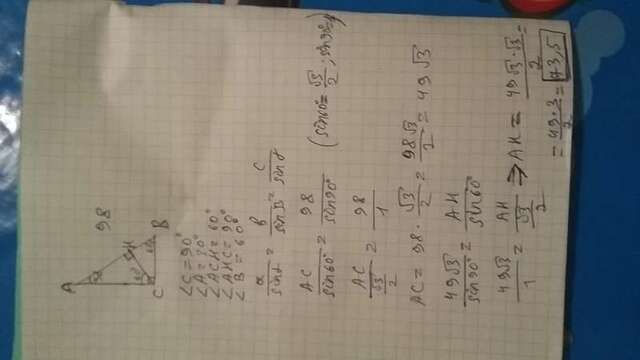 A
30°
98
60°
H
60°
C
B
∠C = 90°
∠A = 30°
∠ACH = 60°
∠AHC = 90°
∠B = 60°
a/sinα = b/sinB = c/sinγ
AC/sin60° = 98/sin90° (sin60° = √3/2; sin90° = 1)
AC/(√3/2) = 98/1
AC = 98 · √3/2 = 98√3/2 = 49√3
49√3/sin90° = AH/sin60°
49√3/1 = AH/(√3/2) ⇒ AH = 49√3·√3/2 =
= 49·3/2 = 73,5